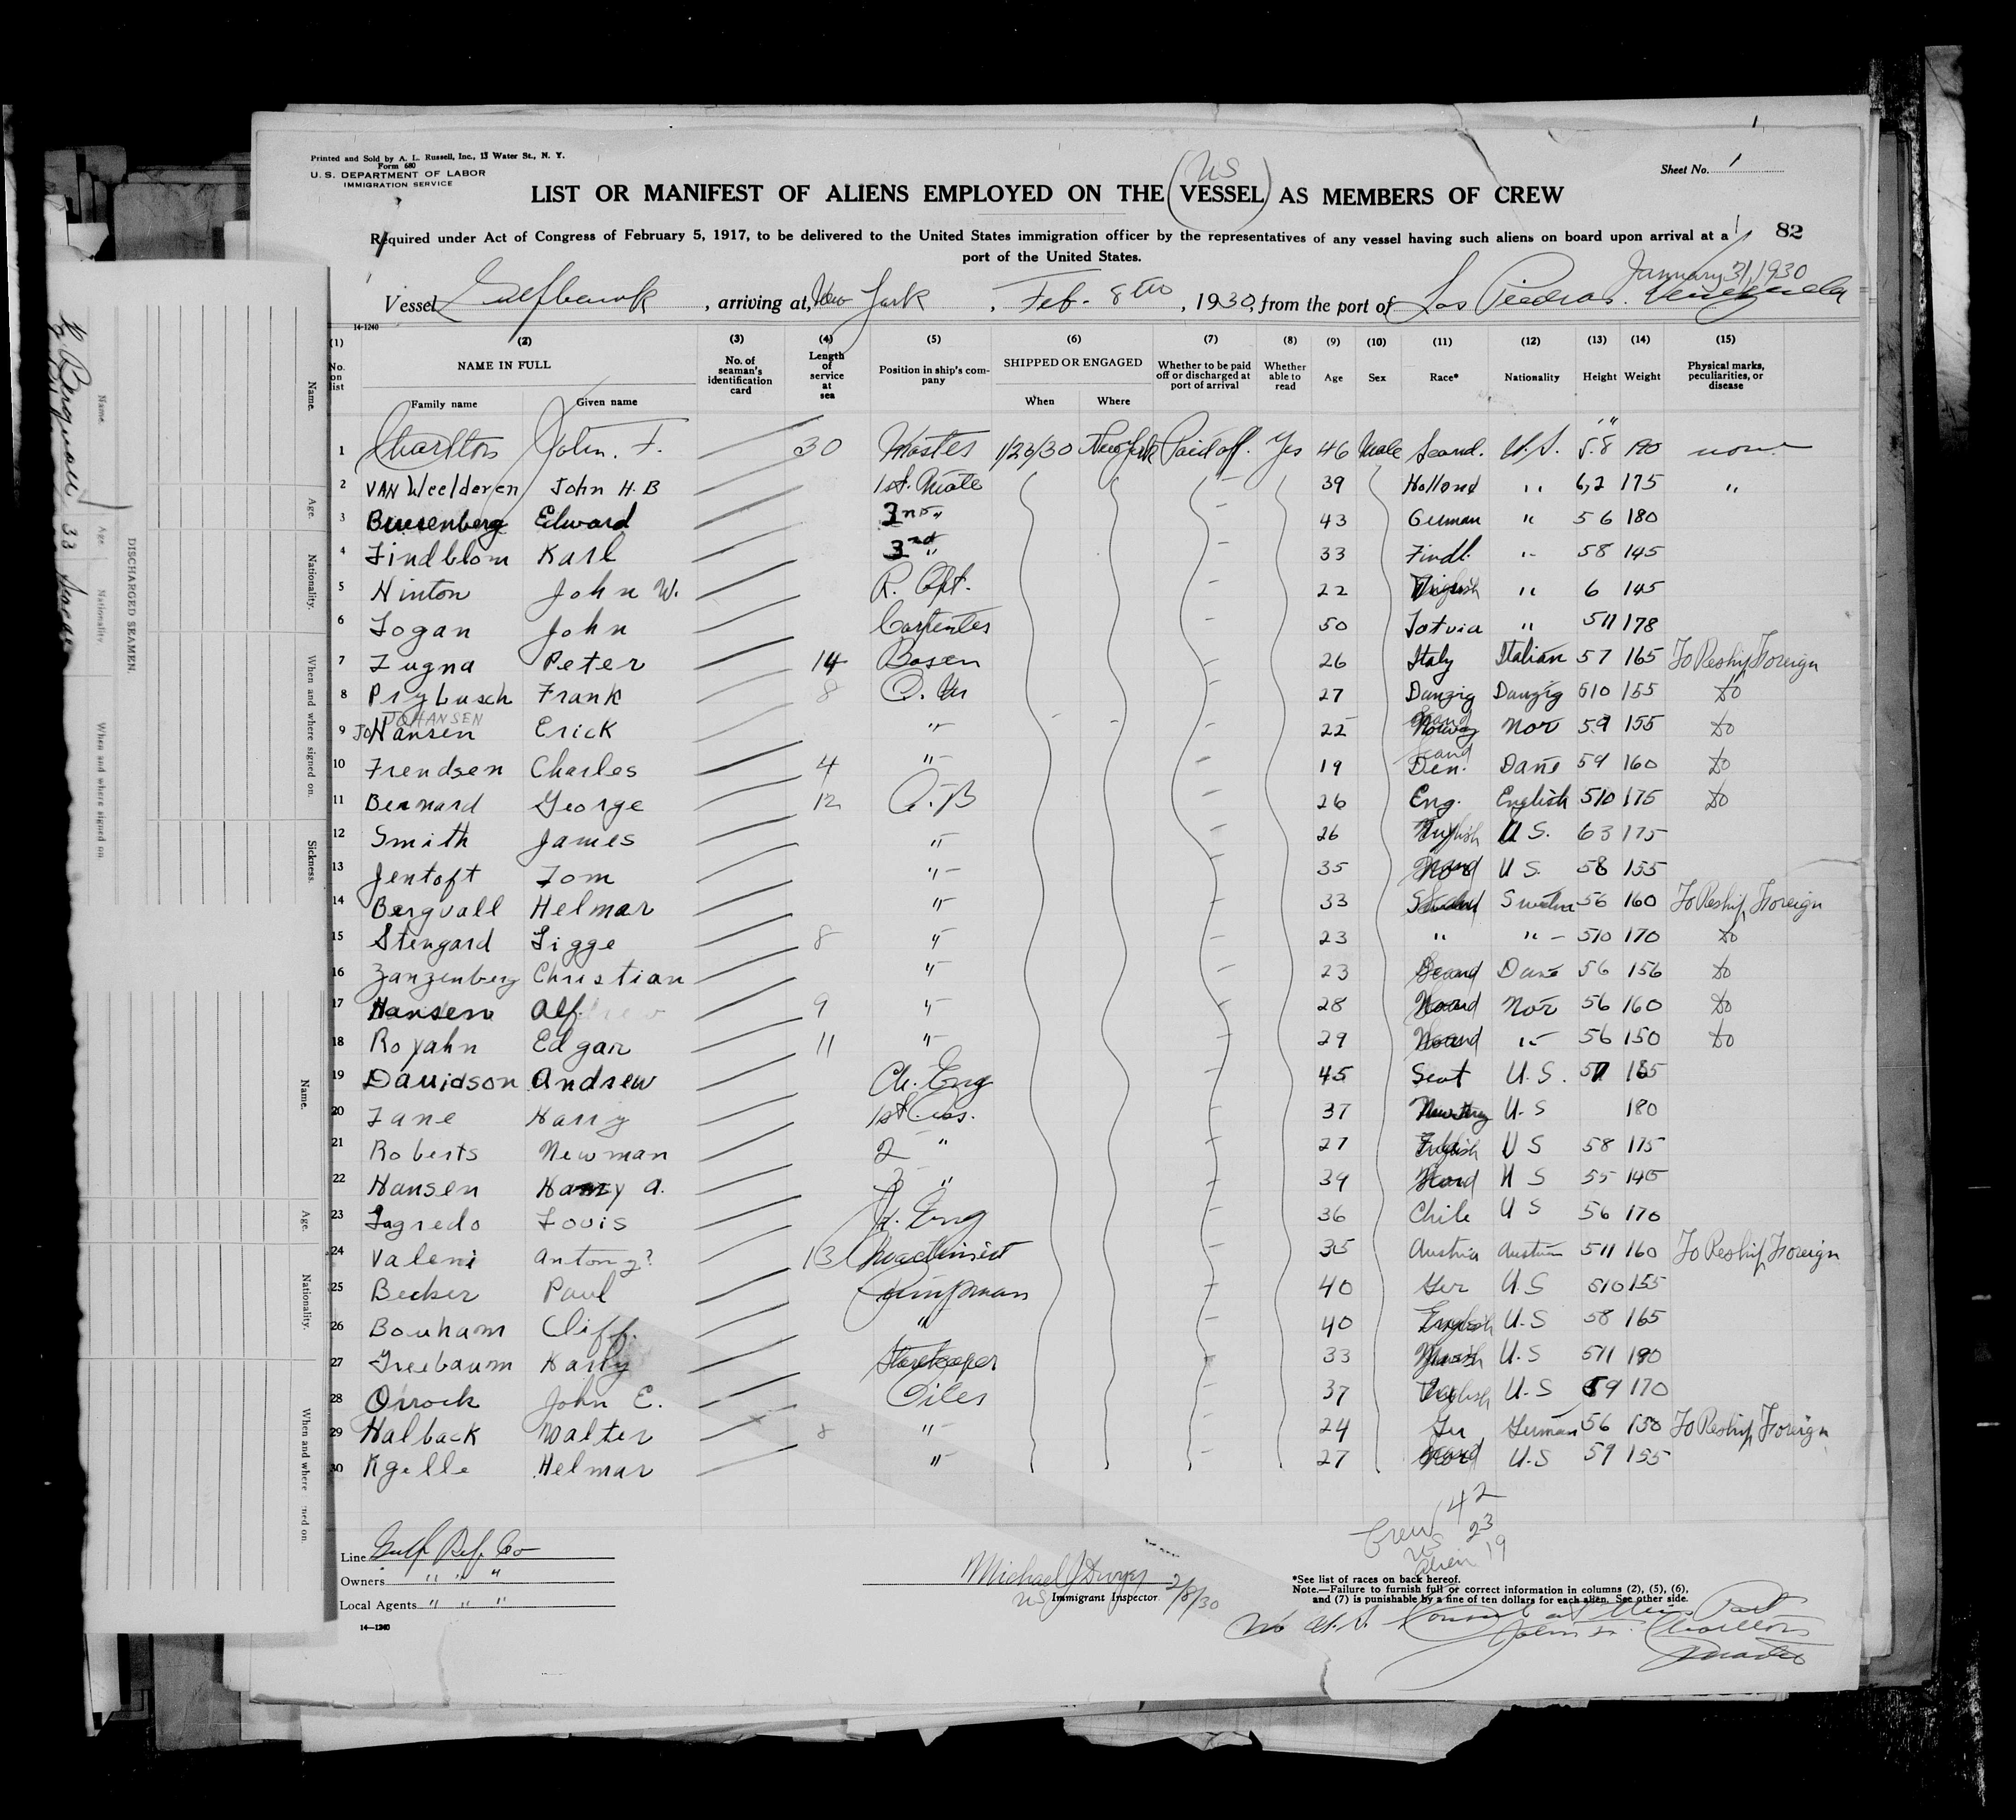 1
Printed and Sold by A. L. Russell, Inc., 13 Water St., N. Y.
Form 680
U. S. DEPARTMENT OF LABOR
IMMIGRATION SERVICE
Sheet No. 1
US
LIST OR MANIFEST OF ALIENS EMPLOYED ON THE VESSEL AS MEMBERS OF CREW
Required under Act of Congress of February 5, 1917, to be delivered to the United States immigration officer by the representatives of any vessel having such aliens on board upon arrival at a
82
port of the United States.
January 31, 1930
Vessel Gulfhawk, arriving at, New York, Feb. 8th, 1930, from the port of Las Piedras. Venezuela
14-1240
(1) (2) (3) (4) (5) (6) (7) (8) (9) (10) (11) (12) (13) (14) (15)
No. on list NAME IN FULL No. of seaman's identification card Length of service at sea Position in ship's company SHIPPED OR ENGAGED Whether to be paid off or discharged at port of arrival Whether able to read Age Sex Race* Nationality Height Weight Physical marks, peculiarities, or disease
Family name Given name When Where
1 Charlton John. F. 30 Master 1/23/30 New York Paid off. Yes 46 Male Scand. U.S. 5.8 190 none
2 VAN Weelderen John H. B 1st. Mate 39 Holland " 6,2 175 "
3 Edward 2nd " 43 German " 5 6 180
4 Lindblom Karl 3rd " 33 Findl. " 58 145
5 Hinton John W. R. Opt. 22 English " 6 145
6 Logan John Carpenter 50 Latvia " 511 178
7 Zugna Peter 14 Bosen 26 Italy Italian 57 165 To Reship Foreign
8 Prybusch Frank 8 Q. M 27 Danzig Danzig 510 155 Do
JOHANSEN
9 JoHansen Erick " 22 Norway Nor 59 155 Do
10 Frendsen Charles 4 " 19 Scand Den. Dane 59 160 Do
11 Bernard George 12 A. B 26 Eng. English 510 175 Do
12 Smith James " 26 English U S. 63 175
13 Jentoft Tom " 35 U S. 58 155
14 Bergvall Helmar " 33 56 160 To Reship Foreign
15 Stengard Sigge 8 " 23 " " 510 170 Do
16 Zanzenberg Christian " 23 Scand Dane 56 156 Do
17 Hansen Alf. 9 " 28 Nor 56 160 Do
18 Royahn Edgar 11 " 29 " 56 150 Do
19 Davidson Andrew Ch. Eng 45 Scot U. S.
20 Lane Harry 1st Ass. 37 U. S 180
21 Roberts Newman 2 " 27 English U S 58 175
22 Hansen Harry A. 3 " 39 U S 55 145
23 Sagredo Louis Jr. Eng 36 Chile U S 56 170
24 Valeni Antony? 13 Machinist 35 Austria 511 160 To Reship Foreign
25 Becker Paul Pumpman 40 Ger U. S 510 155
26 Bonham Cliff. " 40 English U. S 58 165
27 Greebaum Harry Storekeeper 33 U. S 511 190
28 Orrock John E. Oiler 37 English U. S 59 170
29 Halback Walter 8 " 24 Ger German 56 150 To Reship Foreign
30 Kgelle Helmar " 27 U. S 59 155
Crew 42
US 23
Alien 19
Line Gulf Ref. Co
Owners " " "
Local Agents " " "
14-1240
Michael J Dwyer 2/8/30
US Immigrant Inspector
*See list of races on back hereof.
Note.—Failure to furnish full or correct information in columns (2), (5), (6),
and (7) is punishable by a fine of ten dollars for each alien. See other side.
No U.S. Consul at this Port
John F. Charlton
Master
DISCHARGED SEAMEN.
Name. Age. Nationality. When and where signed on. Sickness.
Name. Age. Nationality.
33